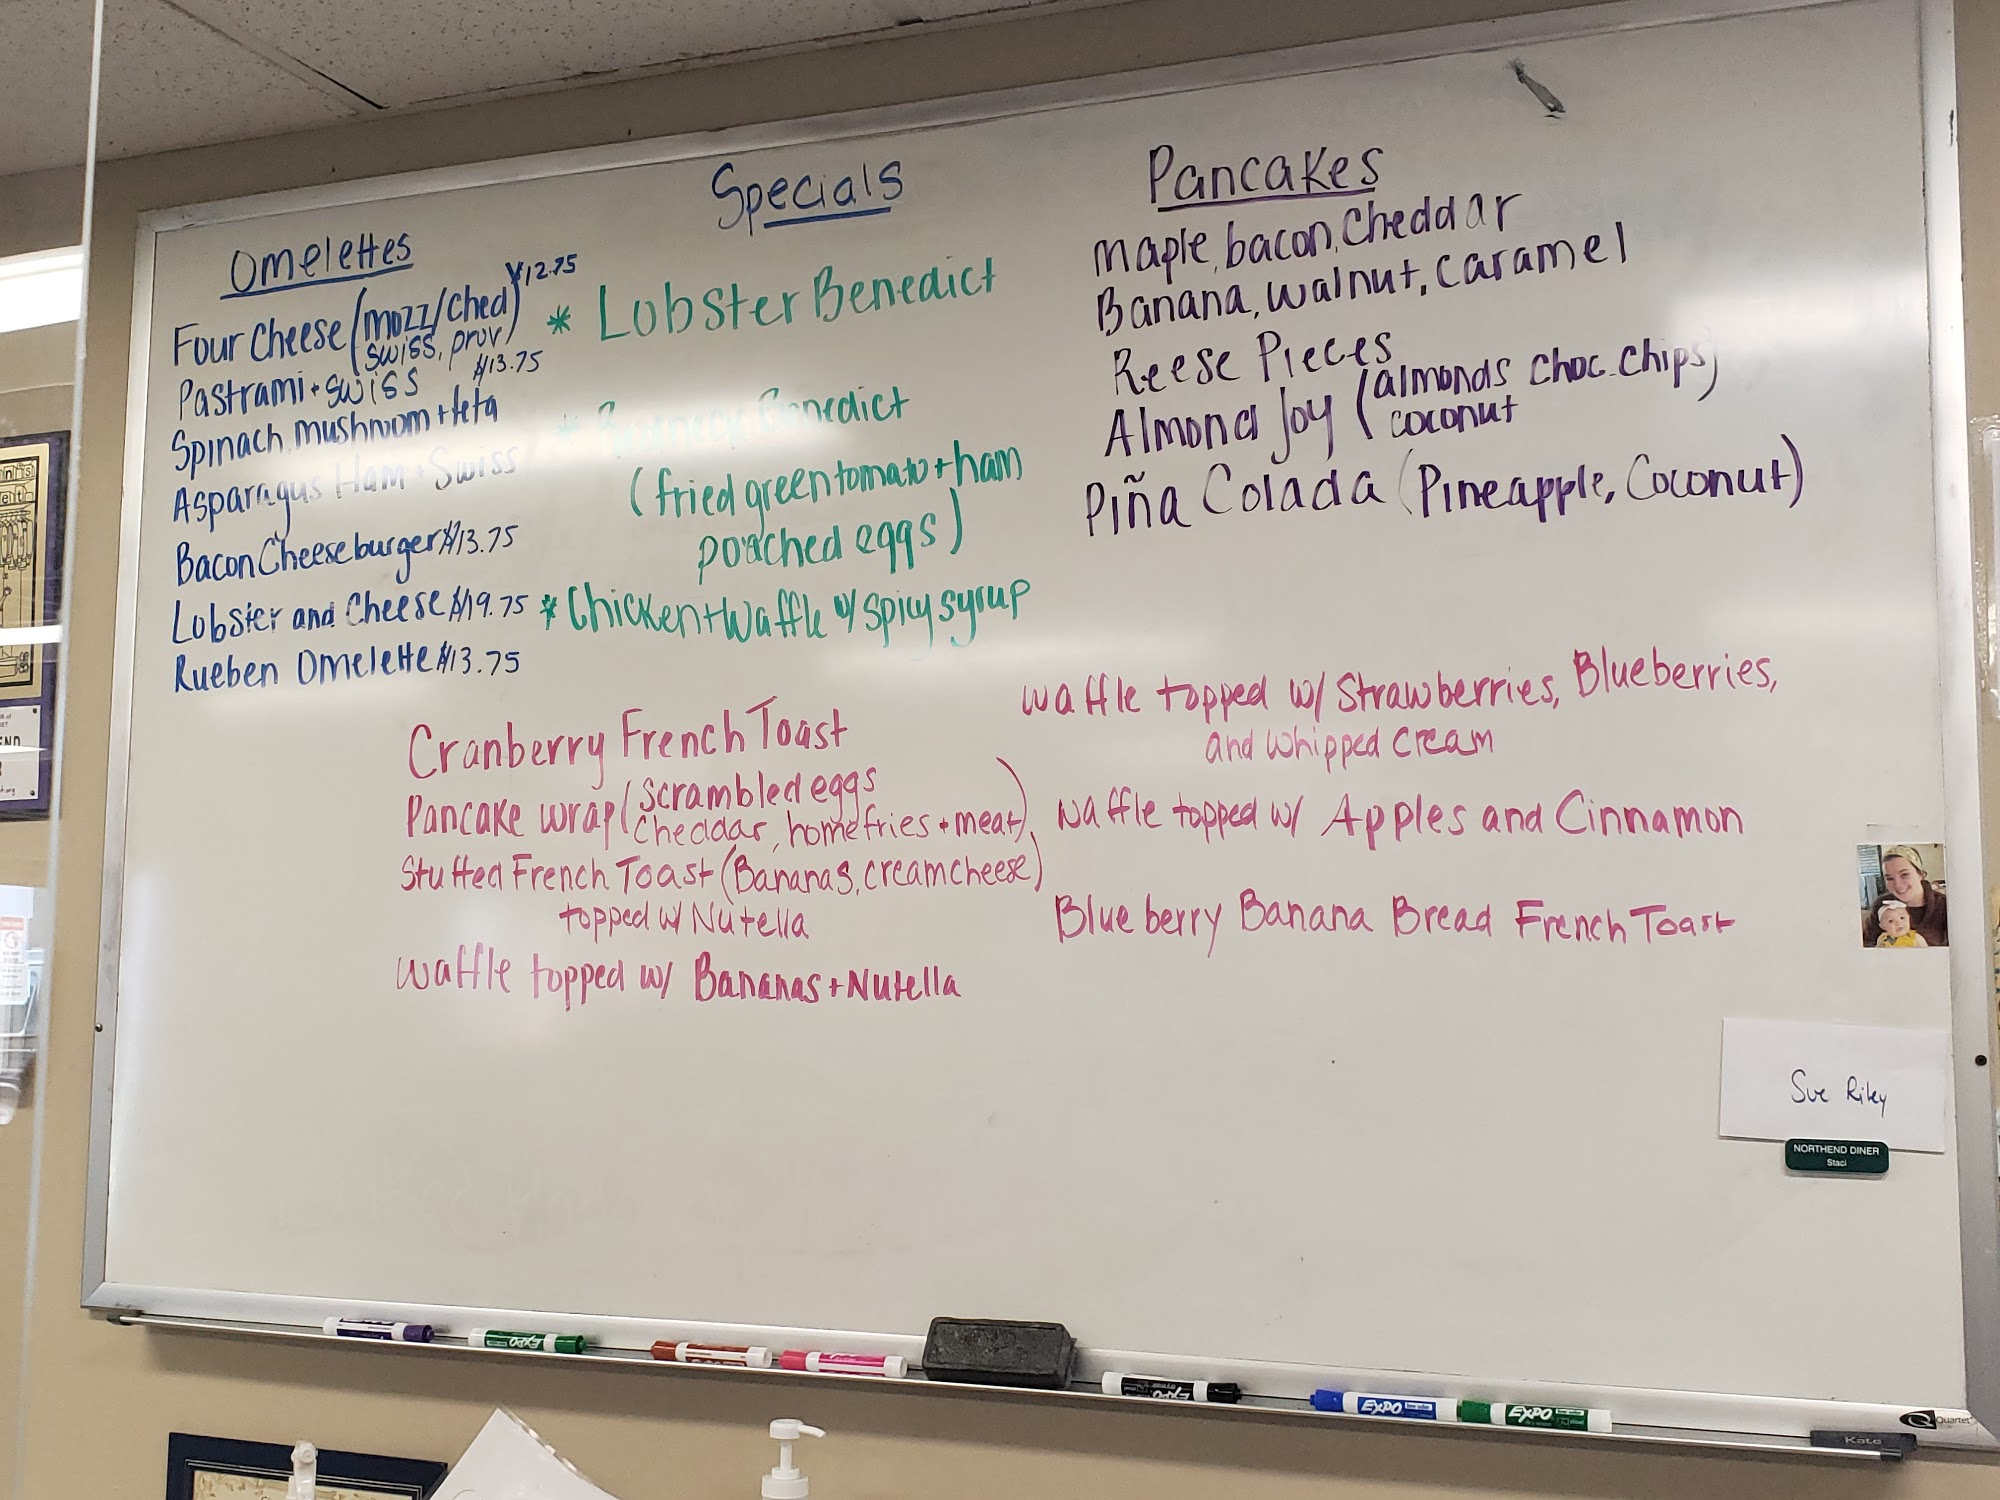 Specials
Omelettes
Four Cheese (mozz/ched) $12.75
swiss, prov)
Pastrami + swiss $13.75
Spinach, mushroom + feta
Asparagus Ham + Swiss
Bacon Cheeseburger $13.75
Lobster and Cheese $19.75
Rueben Omelette $13.75
* Lobster Benedict
* Benedict
(fried green tomato + ham
poached eggs)
* Chicken + Waffle w/ spicy syrup
Pancakes
maple, bacon, Cheddar
Banana, walnut, caramel
Reese Pieces
Almond Joy (almonds choc. chips)
coconut
Piña Colada (Pineapple, Coconut)
Cranberry French Toast
Pancake wrap (scrambled eggs
Cheddar, homefries + meat)
Stuffed French Toast (Bananas, cream cheese)
topped w/ Nutella
Waffle topped w/ Bananas + Nutella
Waffle topped w/ Strawberries, Blueberries,
and whipped cream
Waffle topped w/ Apples and Cinnamon
Blueberry Banana Bread French Toast
Sue Riley
NORTHEND DINER
Staci
EXPO
EXPO
EXPO
EXPO
Quartet
Kate